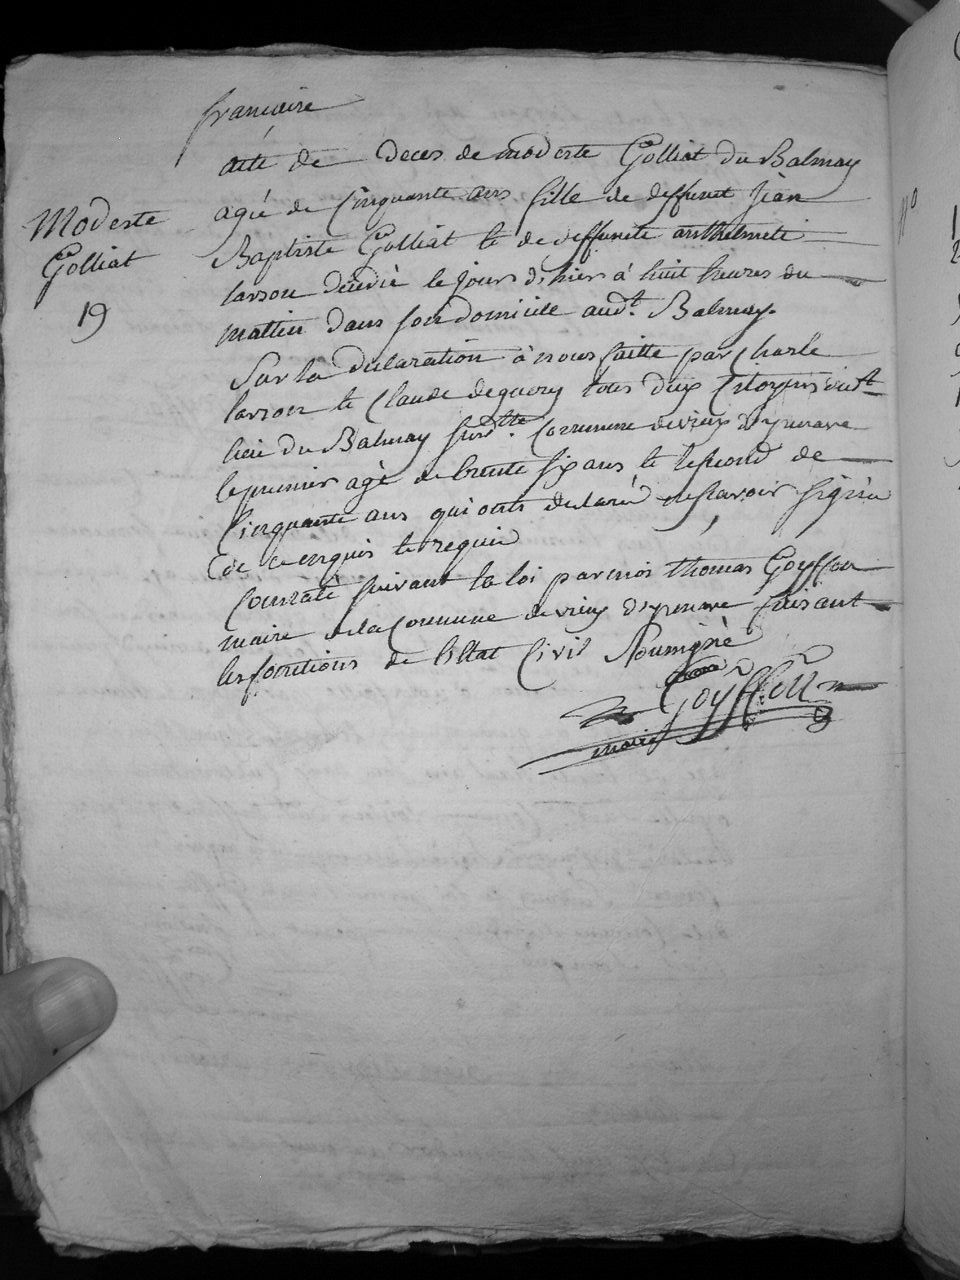 francaise
acte de Deces de modeste Golliat du Balmay
agée de Cinquante ans fille de deffunct jean
Modeste
Golliat
19
Baptiste Golliat et de deffuncte anthelmete
larson décédée le jour d'hier à huit heures du
mattin dans son domicille audt. Balmay.
Sur la declaration à nous faitte par charle
larson et Claude deguery tous deux Citoyens
lieu du Balmay susdtte. Commune de vieux d'yzenave
le premier agé de trente six ans et le second de
Cinquante ans qui onts declaré ne savoir signer
de ce enquis et requis
Constaté suivant la loi par moi thomas Goyffon
maire de la Commune de vieux d'yzenave faisant
les fonctions de l'Etat Civil Soussigné
Goyffon
maire